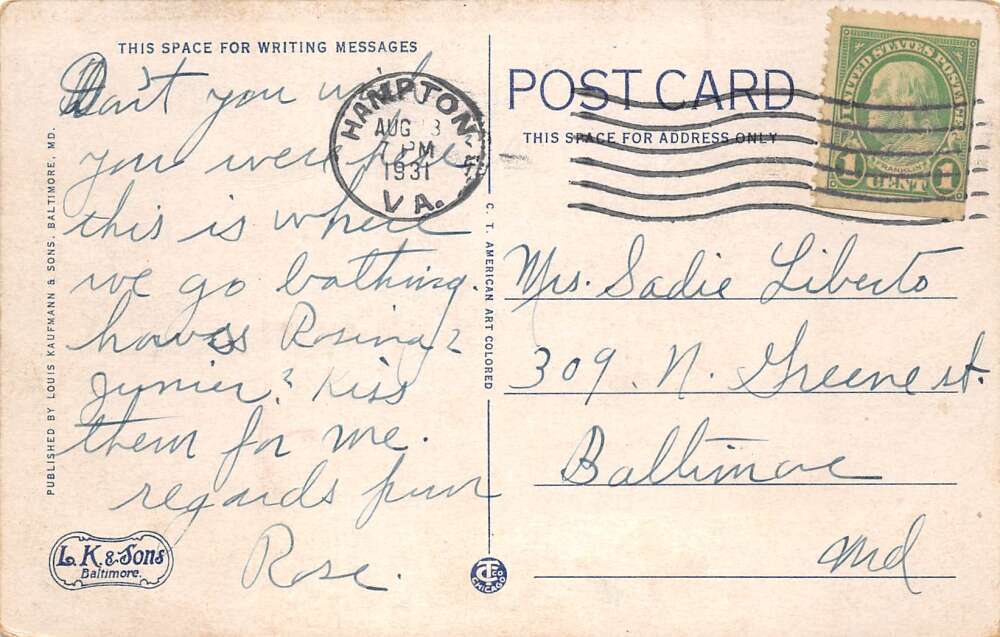 THIS SPACE FOR WRITING MESSAGES
Don't you wish
you were here
this is where
we go bathing.
hows Rosina &
junier? Kiss
them for me.
regards from
Rose.
PUBLISHED BY LOUIS KAUFMANN & SONS, BALTIMORE, MD.
L. K. & Sons
Baltimore.
C. T. AMERICAN ART COLORED
CT CO
CHICAGO
HAMPTON
AUG 3
7 PM
1931
VA.
POST CARD
THIS SPACE FOR ADDRESS ONLY
UNITED STATES POSTAGE
FRANKLIN
1 CENT 1
Mrs. Sadie Liberto
309. N. Greene st.
Baltimore
Md